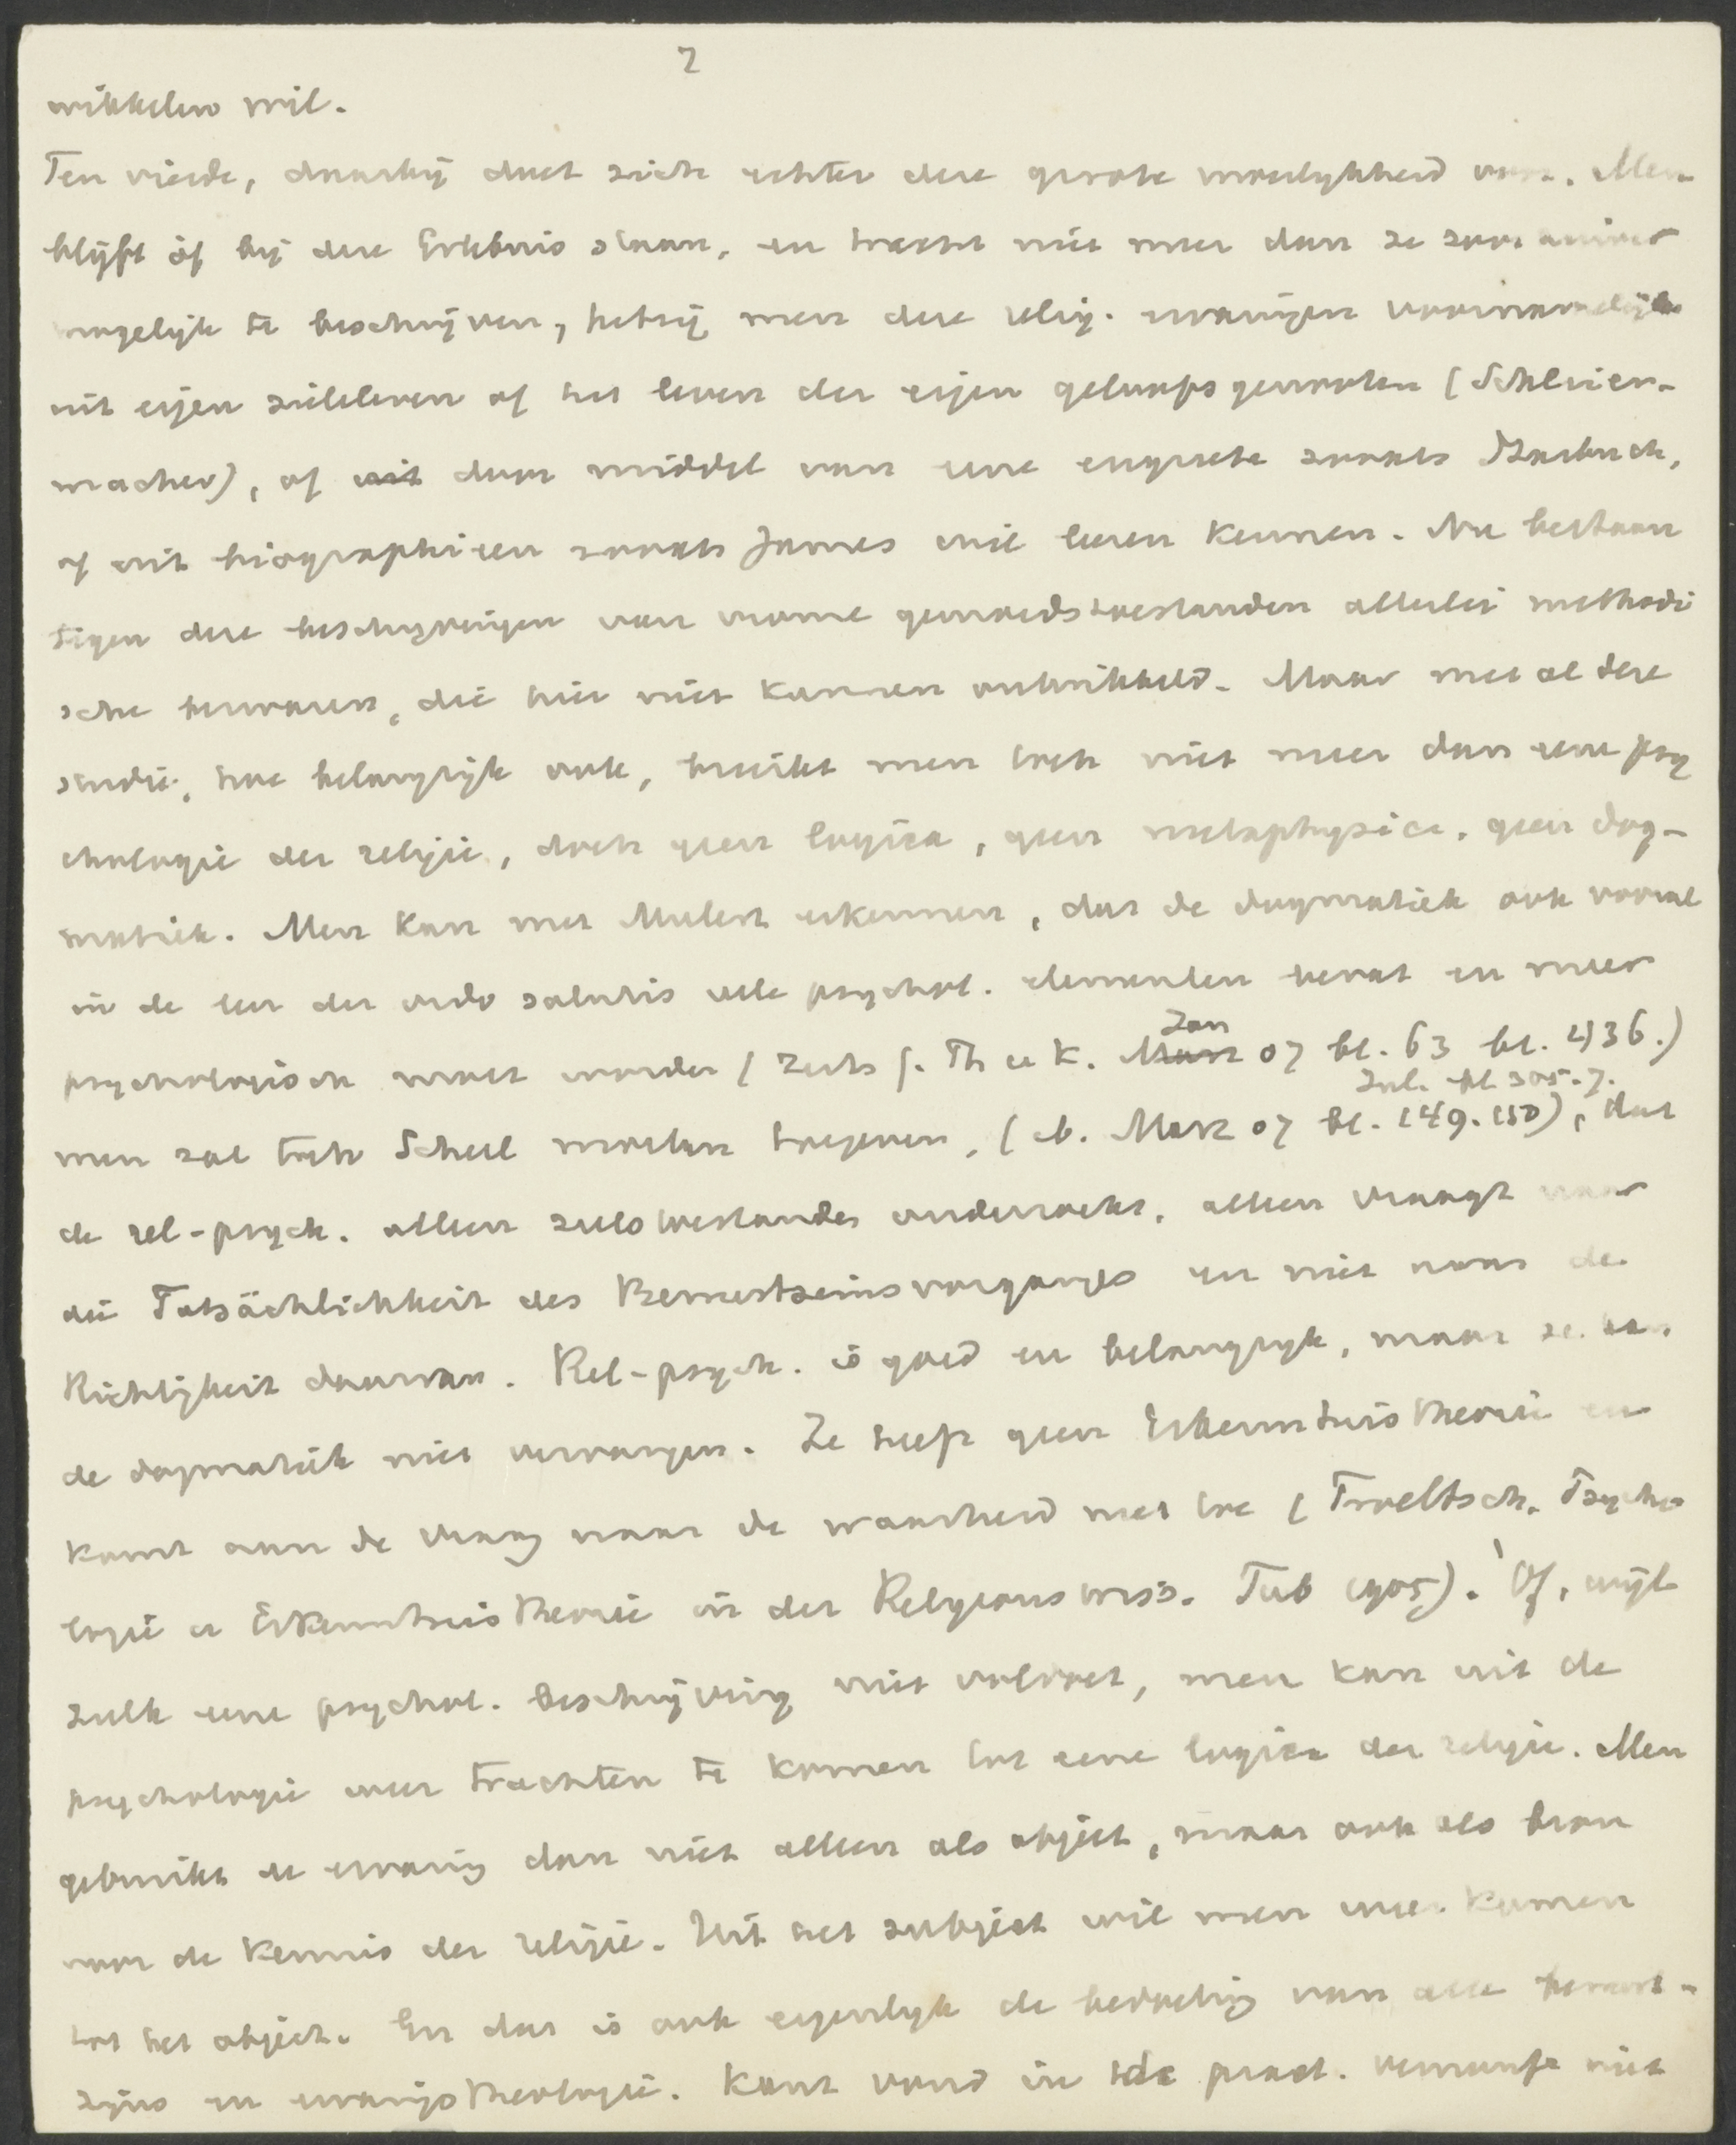 2
wikkelen wil.
Ten vierde, daarbij doet zich echter deze groote moeilykheid voor. Men
blijft òf bij deze Erlebnis staan, en tracht niet meer dan ze zoo
mogelijk te beschrijven, hetzij men deze relig. ervaringen voornamelijk
uit eigen zieleleven of het leven der eigen geloofsgenooten (Schleier-
macher), of uit door middel van eene enquete zooals Starbuck,
of uit biographieen zooals James wil leeren kennen. Nu bestaan
tegen deze beschrijvingen van vrome gemoedstoestanden allerlei methodi
sche bezwaren, die hier niet kunnen ontwikkeld. Maar met al deze
studie, hoe belangrijk ook, bereikt men toch niet meer dan eene psy
chologie der religie, doch geen logica, geen metaphysica, geen dog-
matiek. Men kan met Mulert erkennen, dat de dogmatiek ook vooral
in de leer der ordo salutis vele psychol. elementen bevat en meer
psychologisch moet worden (Zeits f. Th u K. Marz Jan 07 bl. 63 bl. 436.)
Jul. bl 305.7.
men zal toch Scheel moeten toegeven, (ib. Marz 07 bl. 149. 150), dat
de rel-psych. alleen zielstoestanden onderzoekt, alleen vraagt naar
die Tatsächlichkeit des Bewustseinsvorganges en niet naar de
Richtigkeit daarvan. Rel-psych. is goed en belangryk, maar ze kan
de dogmatiek niet vervangen. Ze heeft geen Erkenntnistheorie en
komt aan de vraag naar de waarheid niet toe (Troeltsch. Psycho
logie u Erkenntnistheorie in der Religionswiss. Tub 1905). Of, wijl
zulk eene psychol. beschrijving niet voldoet, men kan uit de
psychologie weer trachten te komen tot eene logica der religie. Men
gebruikt de ervaring dan niet alleen als object, maar ook als bron
voor de kennis der religie. Uit het subject wil men weer komen
tot het object. En dat is ook eigenlyk de bedoeling van alle bewust-
zijns en ervaringstheologie. Kant vond in de pract. vernunft niet